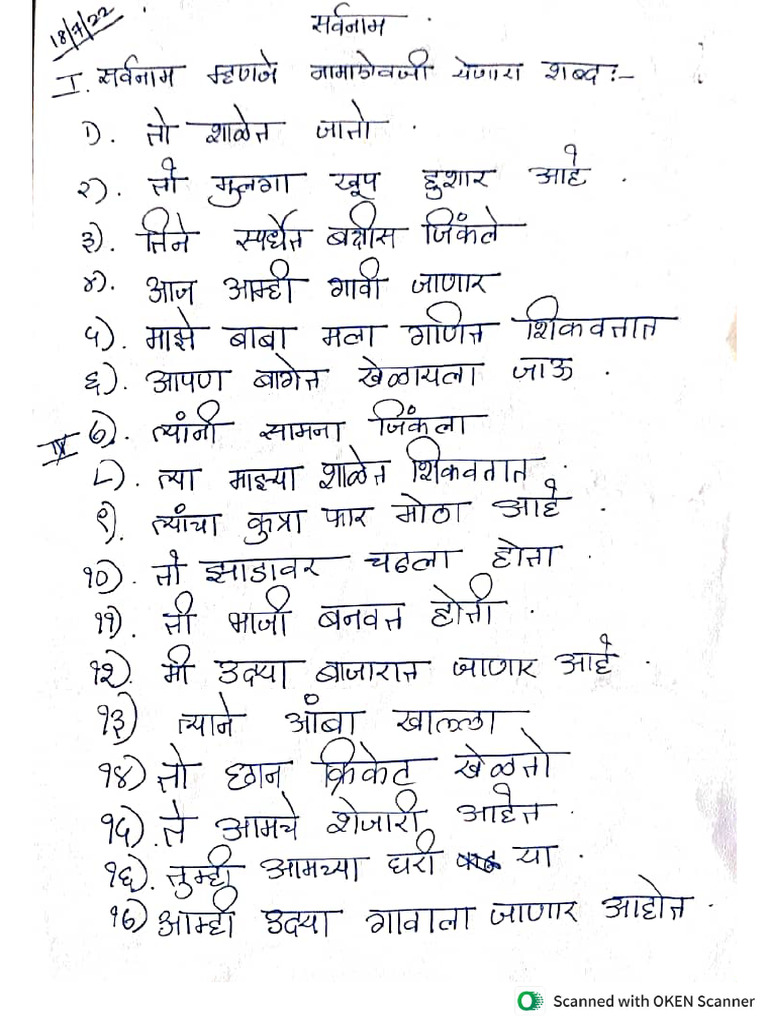 18/7/22
सर्वनाम .
I. सर्वनाम म्हणजे नामाऐवजी येणारा शब्द :-
१). तो शाळेत जातो .
२). तो मुलगा खूप हुशार आहे .
३). तिने स्पर्धेत बक्षीस जिंकले
४). आज आम्ही गावी जाणार
५). माझे बाबा मला गणित शिकवतात
६). आपण बागेत खेळायला जाऊ .
IV ७). त्यांनी सामना जिंकला
८). त्या माझ्या शाळेत शिकवतात .
९). त्यांचा कुत्रा फार मोठा आहे .
१०). तो झाडावर चढला होता .
११). ती भाजी बनवत होती .
१२). मी उदया बाजारात जाणार आहे .
१३) त्याने आंबा खाल्ला
१४) तो छान क्रिकेट खेळतो
१५). ते आमचे शेजारी आहेत .
१६). तुम्ही आमच्या घरी या .
१७) आम्ही उदया गावाला जाणार आहोत .
Scanned with OKEN Scanner